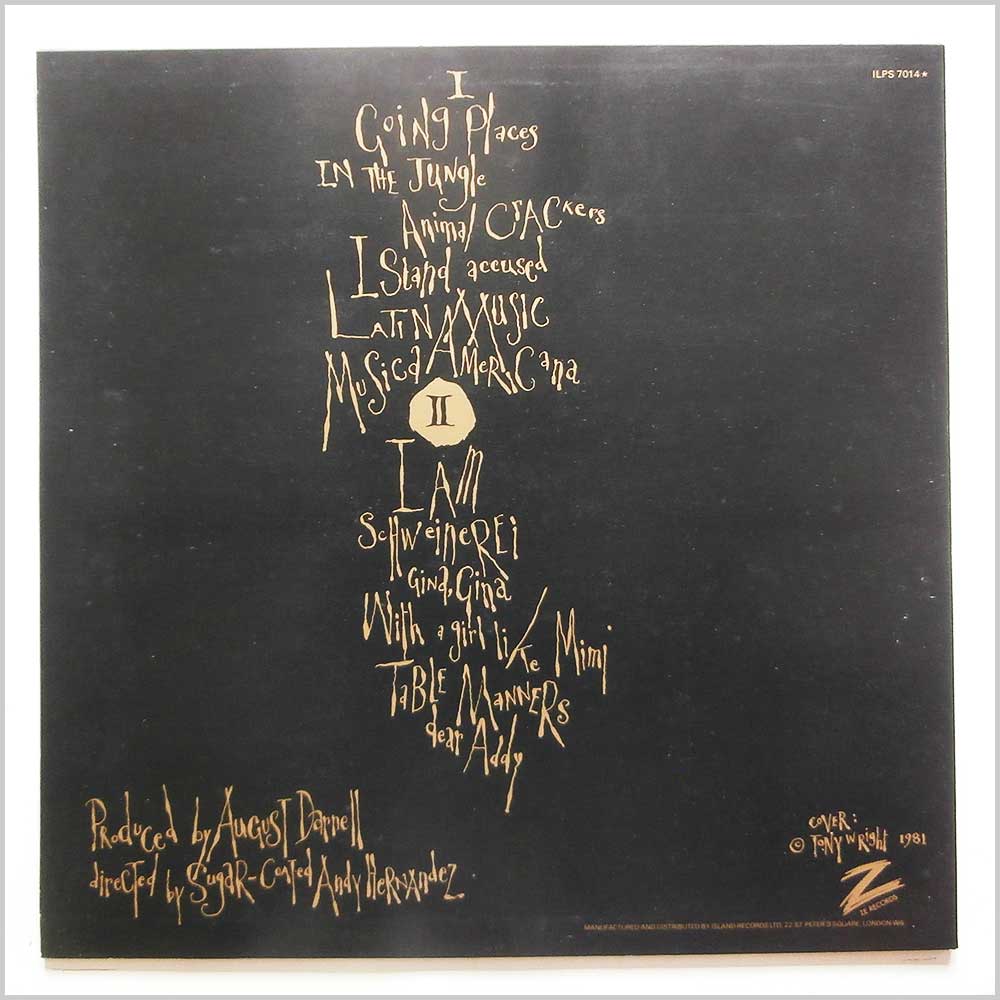 ILPS 7014★
I
Going Places
IN THE JUNgle
Animal CrACkers
IStand accused
LATIN MUSIC
MUSica AMERICana
II
I AM
SCHWeineREi
Gina, Gina
With a girl like Mimi
TaBLE MANNERS
dear Addy
PRoduced by AUGUST Darnell
directed by SUGAR-Coated Andy HeRNANdez
COVER:
© TONY WRight 1981
Z
ZE RECORDS
MANUFACTURED AND DISTRIBUTED BY ISLAND RECORDS LTD, 22 ST. PETER'S SQUARE, LONDON W6